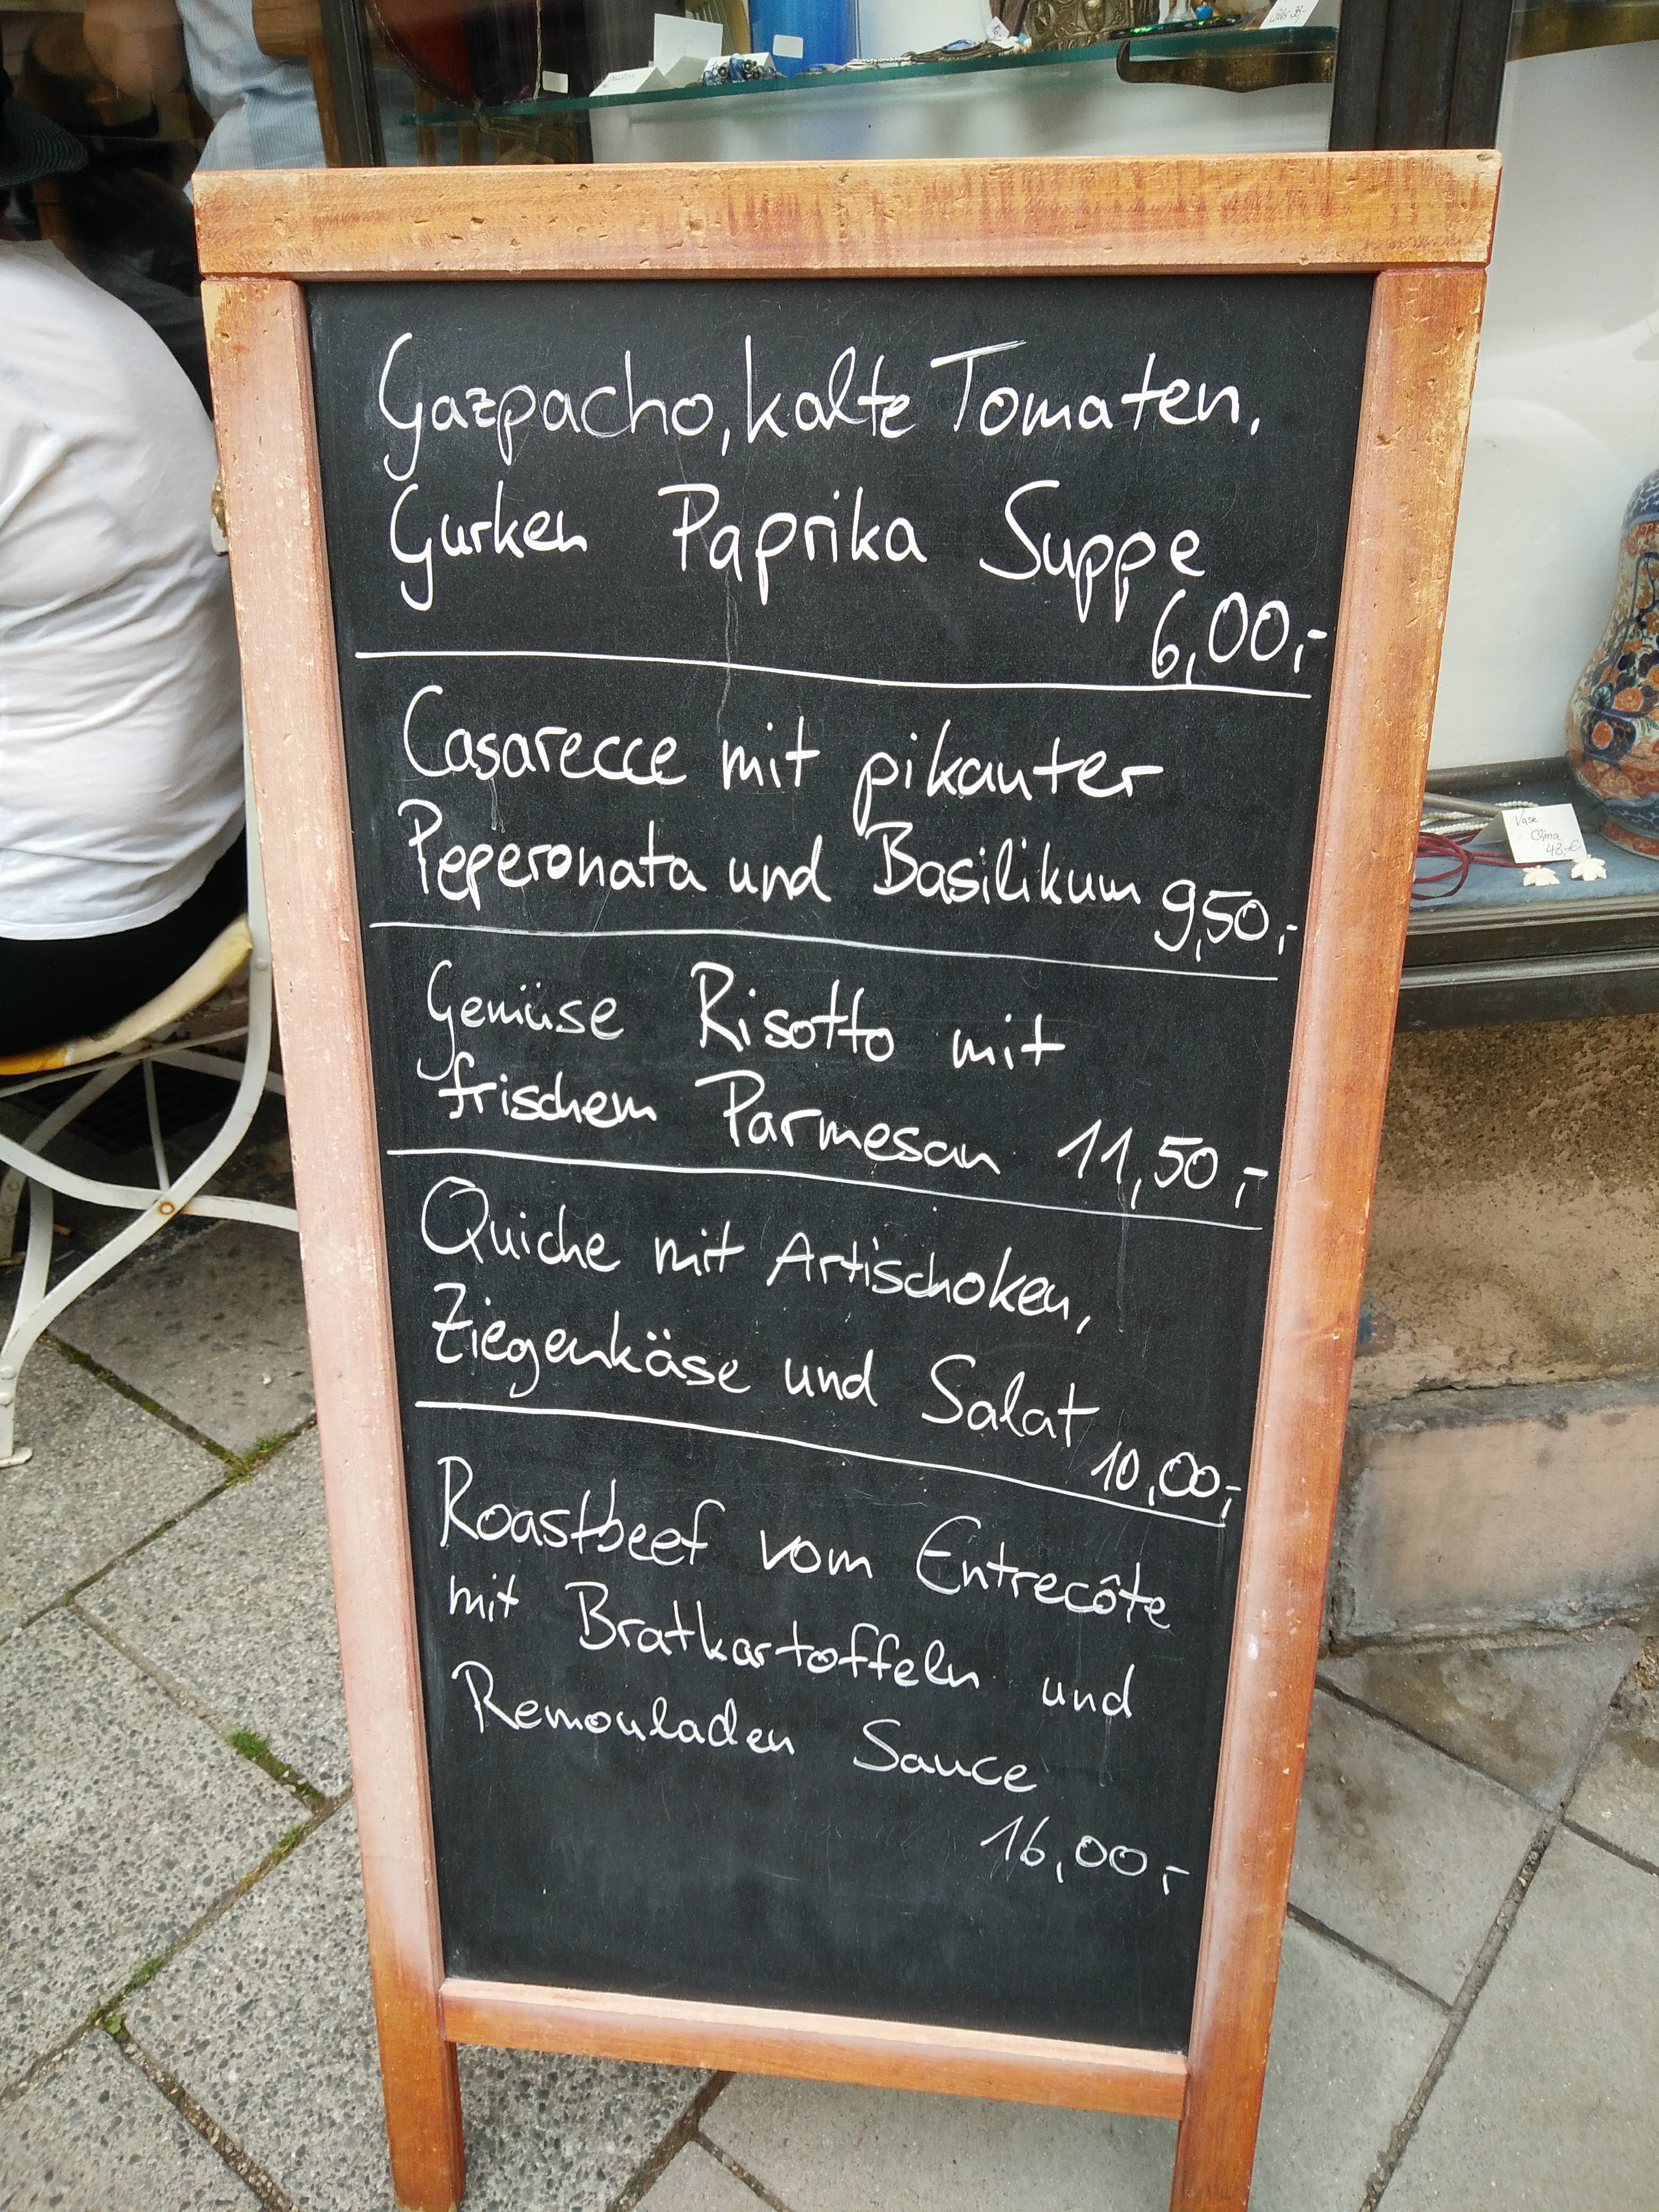 Gazpacho, kalte Tomaten.
Gurken Paprika Suppe
6,00,-
Casarecce mit pikanter
Peperonata und Basilikum 9,50,-
Gemüse Risotto mit
frischem Parmesan 11,50,-
Quiche mit Artischoken,
Ziegenkäse und Salat
10,00,-
Roastbeef vom Entrecôte
mit Bratkartoffeln und
Remouladen Sauce
16,00,-
Vase
China
48,-€